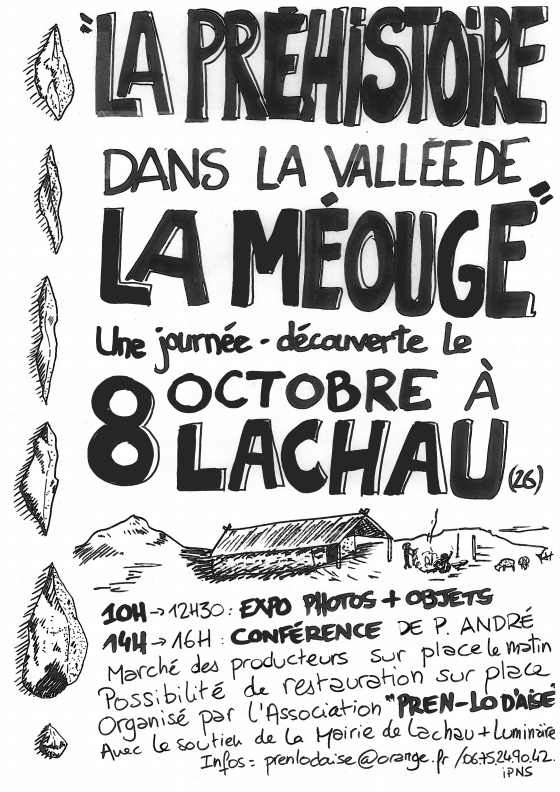 "LA PRÉHiSTOiRE
DANS LA VALLÉE DE
LA MÉOUGE"
Une journée - découverte le
8 OCTOBRE À
LACHAU (26)
10H → 12H30 : EXPO PHOTOS + OBJETS
14H → 16H : CONFÉRENCE DE P. ANDRÉ
Marché des producteurs sur place le matin
Possibilité de restauration sur place
Organisé par l'Association "PREN-LO D'AISE"
Avec le soutien de la Mairie de Lachau + Luminaire
Infos = prenlodaise@orange.fr / 06.75.24.90.42.
iPNS